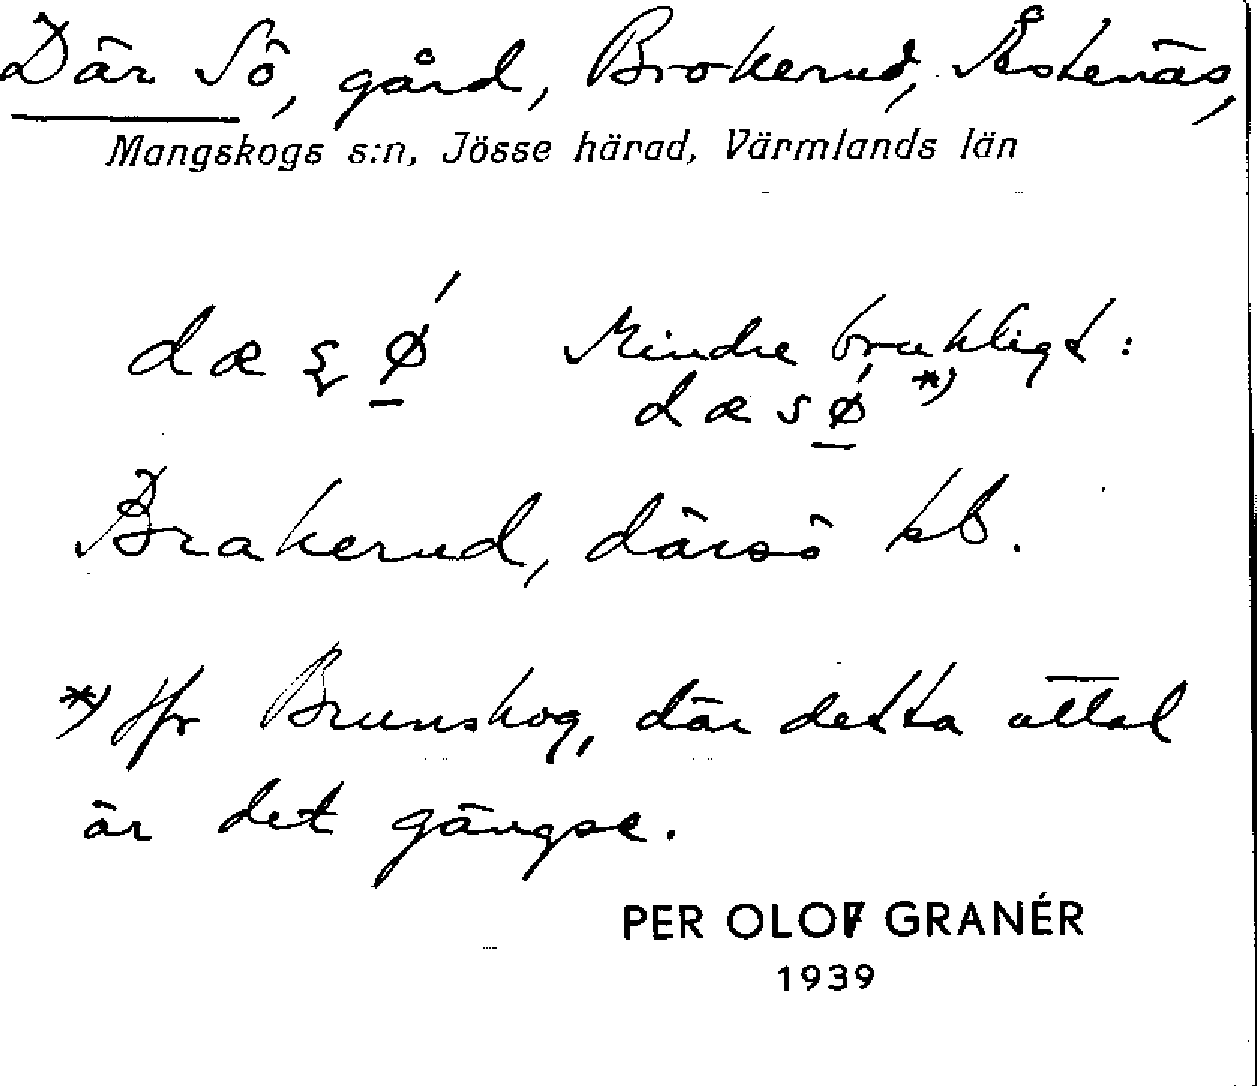 Där Sö, gård, Brokerud, Åstenäs,
Mangskogs s:n, Jösse härad, Värmlands län
Mindre brukligt:
dæsø *)
Brakerud, därsö kb.
*) Jfr Brunskog, där detta uttal
är det gängse.
PER OLOF GRANÉR
1939